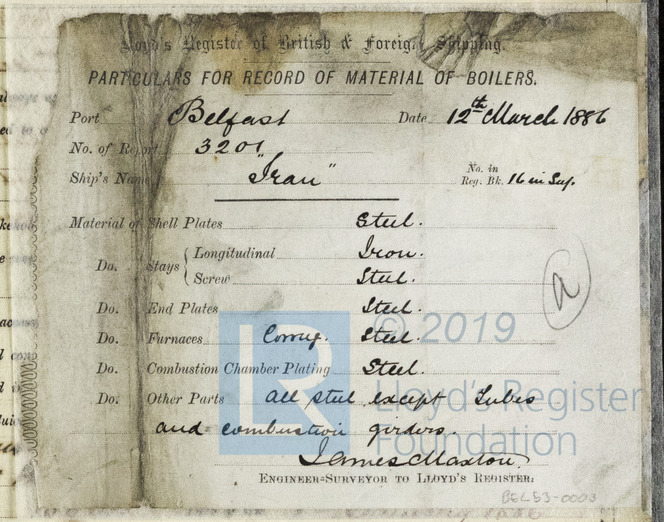 Lloyd's Register of British & Foreign Shipping.
PARTICULARS FOR RECORD OF MATERIAL OF BOILERS.
Port Belfast Date 12th March 1886
No. of Report 3201
Ship's Name "Iran" No. in Reg. Bk. 16 in Sup.
Material of Shell Plates Steel.
Do. Stays Longitudinal Iron.
Screw Steel.
Do. End Plates Steel.
Do. Furnaces Corrug. Steel.
Do. Combustion Chamber Plating Steel.
Do. Other Parts All steel except Tubes
and combustion girders.
James Maxton
ENGINEER-SURVEYOR TO LLOYD'S REGISTER.
a
LR
© 2019
Lloyd's Register
Foundation
BEL53-0003